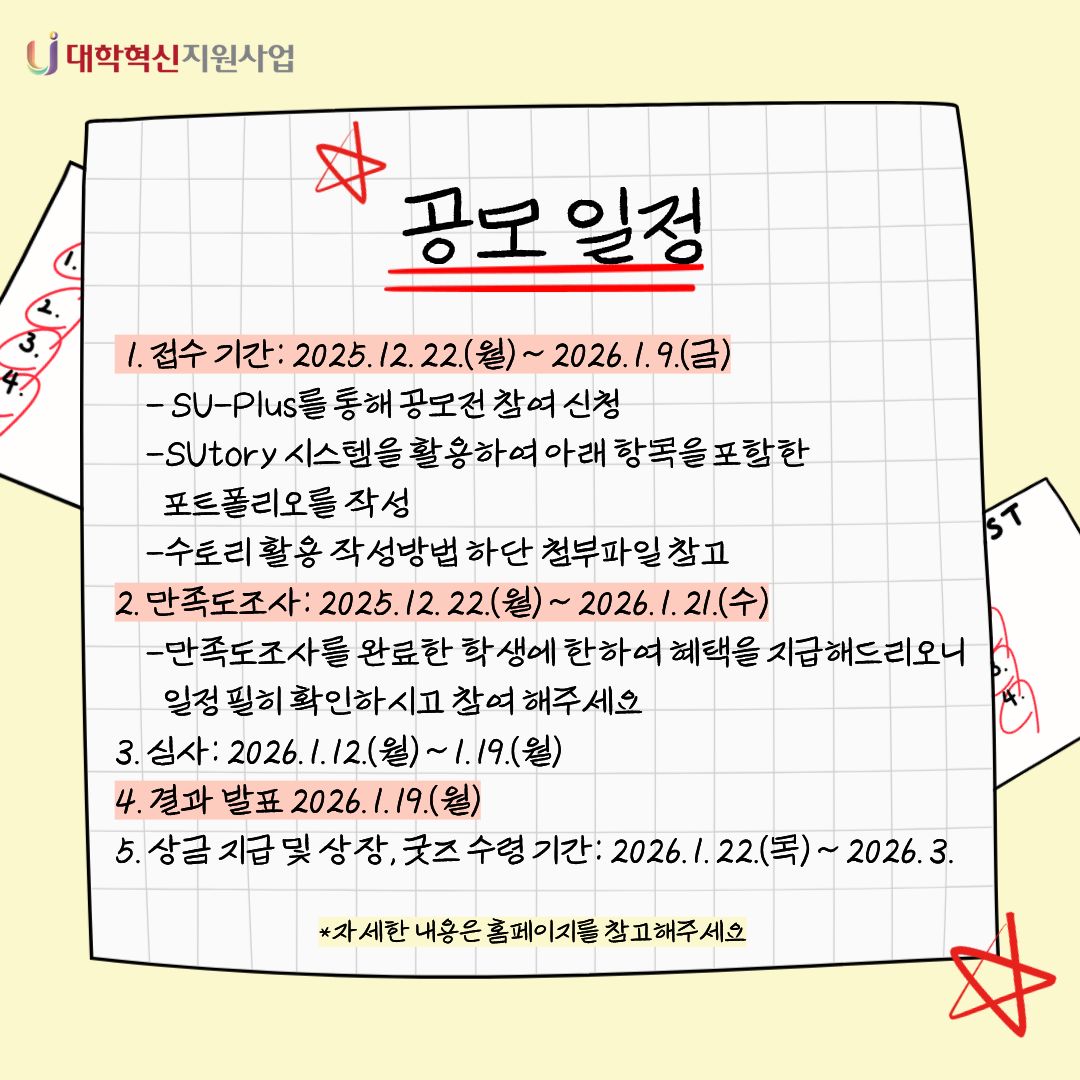 대학혁신지원사업
공모 일정
1.
2.
3.
4.
1. 접수 기간 : 2025. 12. 22.(월) ~ 2026. 1. 9.(금)
- SU-Plus를 통해 공모전 참여 신청
-SUtory 시스템을 활용하여 아래 항목을 포함한
포트폴리오를 작성
-수토리 활용 작성방법 하단 첨부파일 참고
2. 만족도조사 : 2025. 12. 22.(월) ~ 2026. 1. 21.(수)
-만족도조사를 완료한 학생에 한하여 혜택을 지급해드리오니
일정 필히 확인하시고 참여 해주세요
3. 심사 : 2026. 1. 12.(월) ~ 1. 19.(월)
4. 결과 발표 2026. 1. 19.(월)
5. 상금 지급 및 상장, 굿즈 수령 기간 : 2026. 1. 22.(목) ~ 2026. 3.
*자세한 내용은 홈페이지를 참고해주세요
ST
3.
4.